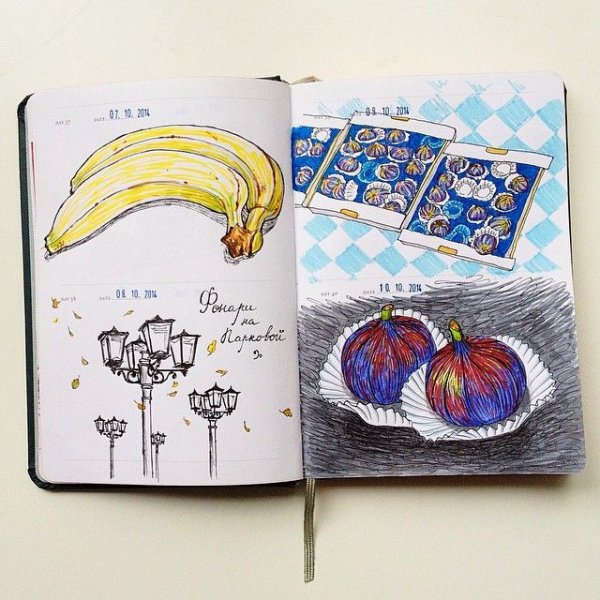 DAY 37
07. 10. 2014
DAY 38
DATE
08. 10. 2014
Фонари
на
Парковой
DATE
09. 10. 2014
DAY 40
DATE
10. 10. 2014